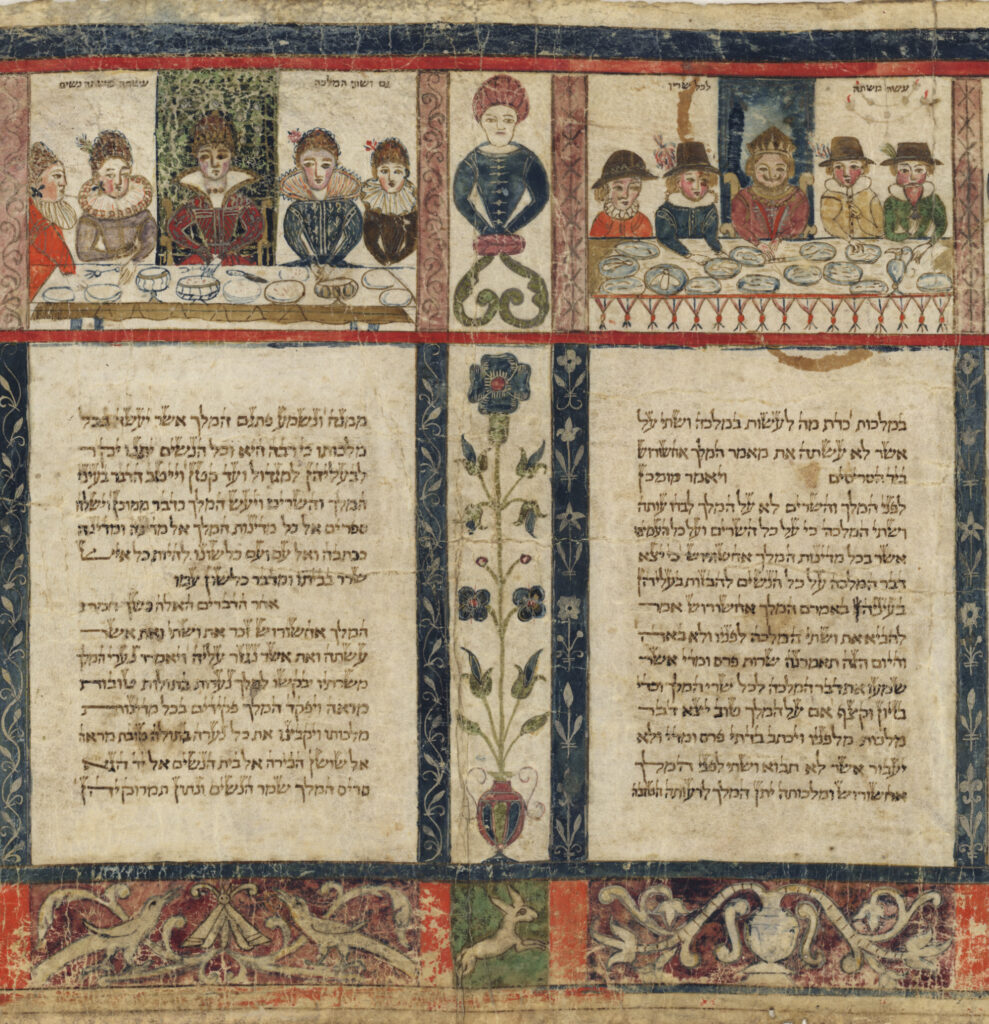 עשה משתה
לכל שריו
במלכות כדת מה לעשות במלכה ושתי על
אשר לא עשתה את מאמר המלך אחשורוש
ביד הסריסים ויאמר מומכן
לפני המלך והשרים לא על המלך לבדו עותה
ושתי המלכה כי על כל השרים ועל כל העמים
אשר בכל מדינות המלך אחשורוש כי יצא
דבר המלכה על כל הנשים להבזות בעליהן
בעיניהן באמרם המלך אחשורוש אמר
להביא את ושתי המלכה לפניו ולא באה
והיום הזה תאמרנה שרות פרס ומדי אשר
שמעו את דבר המלכה לכל שרי המלך וכדי
בזיון וקצף אם על המלך טוב יצא דבר
מלכות מלפניו ויכתב בדתי פרס ומדי ולא
יעבור אשר לא תבוא ושתי לפני המלך
אחשורוש ומלכותה יתן המלך לרעותה הטובה
גם ושתי המלכה
עשתה משתה נשים
ממנה ונשמע פתגם המלך אשר יעשה בכל
מלכותו כי רבה היא וכל הנשים יתנו יקר
לבעליהן למגדול ועד קטן וייטב הדבר בעיני
המלך והשרים ויעש המלך כדבר ממוכן וישלח
ספרים אל כל מדינות המלך אל מדינה ומדינה
ככתבה ואל עם ועם כלשונו להיות כל איש
שרר בביתו ומדבר כלשון עמו
אחר הדברים האלה כשך חמת
המלך אחשורוש זכר את ושתי ואת אשר
עשתה ואת אשר נגזר עליה ויאמרו נערי המלך
משרתיו יבקשו למלך נערות בתולות טובות
מראה ויפקד המלך פקידים בכל מדינות
מלכותו ויקבצו את כל נערה בתולה טובת מראה
אל שושן הבירה אל בית הנשים אל יד הגא
סריס המלך שמר הנשים ונתון תמרוקיהן